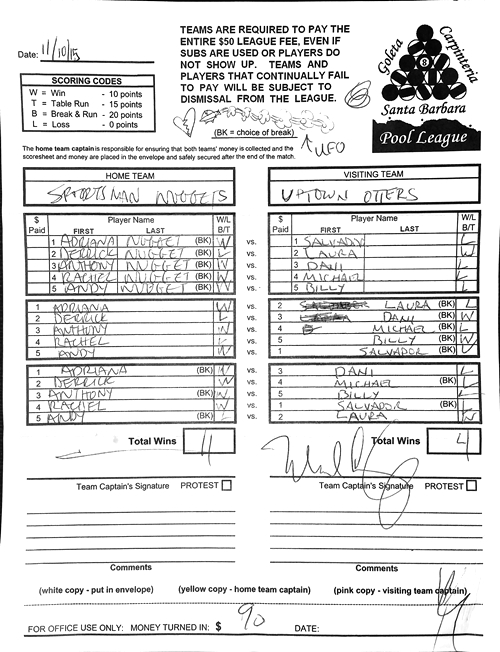 TEAMS ARE REQUIRED TO PAY THE
ENTIRE $50 LEAGUE FEE, EVEN IF
SUBS ARE USED OR PLAYERS DO
NOT SHOW UP. TEAMS AND
PLAYERS THAT CONTINUALLY FAIL
TO PAY WILL BE SUBJECT TO
DISMISSAL FROM THE LEAGUE.
Goleta Carpinteria
8
Santa Barbara
Pool League
Date: 11/10/15
SCORING CODES
W = Win - 10 points
T = Table Run - 15 points
B = Break & Run - 20 points
L = Loss - 0 points
(BK = choice of break)
UFO
The home team captain is responsible for ensuring that both teams' money is collected and the
scoresheet and money are placed in the envelope and safely secured after the end of the match.
HOME TEAM VISITING TEAM
SPORTSMAN NUGGETS UPTOWN OTTERS
$ Paid Player Name FIRST LAST W/L B/T $ Paid Player Name FIRST LAST W/L B/T
1 ADRIANA NUGGET (BK) W vs. 1 SALVADOR L
2 DERRICK NUGGET (BK) L vs. 2 LAURA W
3 ANTHONY NUGGET (BK) W vs. 3 DANI L
4 RACHEL NUGGET (BK) W vs. 4 MICHAEL L
5 ANDY NUGGET (BK) W vs. 5 BILLY L
1 ADRIANA W vs. 2 LAURA (BK) L
2 DERRICK L vs. 3 DANI (BK) W
3 ANTHONY W vs. 4 MICHAEL (BK) L
4 RACHEL L vs. 5 BILLY (BK) W
5 ANDY W vs. 1 SALVADOR (BK) L
1 ADRIANA (BK) W vs. 3 DANI L
2 DERRICK W vs. 4 MICHAEL (BK) L
3 ANTHONY (BK) W vs. 5 BILLY L
4 RACHEL W vs. 1 SALVADOR (BK) L
5 ANDY (BK) L vs. 2 LAURA W
Total Wins 11 Total Wins 4
Team Captain's Signature PROTEST Team Captain's Signature PROTEST
Comments Comments
(white copy - put in envelope) (yellow copy - home team captain) (pink copy - visiting team captain)
FOR OFFICE USE ONLY: MONEY TURNED IN: $ 90 DATE: